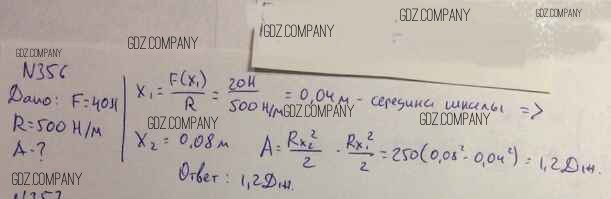 GDZ.COMPANY
GDZ.COMPANY
GDZ.COMPANY
GDZ.COMPANY
N356
Дано: F=40Н
R=500 Н/м
A-?
x₁ = F(x₁)/R = 20Н/500 Н/м = 0,04 м - середина шкалы =>
GDZ.COMPANY
GDZ.COMPANY
GDZ.COMPANY
x₂ = 0,08 м
A = Rx₂²/2 - Rx₁²/2 = 250(0,08² - 0,04²) = 1,2 Дж.
Ответ: 1,2 Дж.
GDZ.COMPANY
GDZ.COMPANY
N357